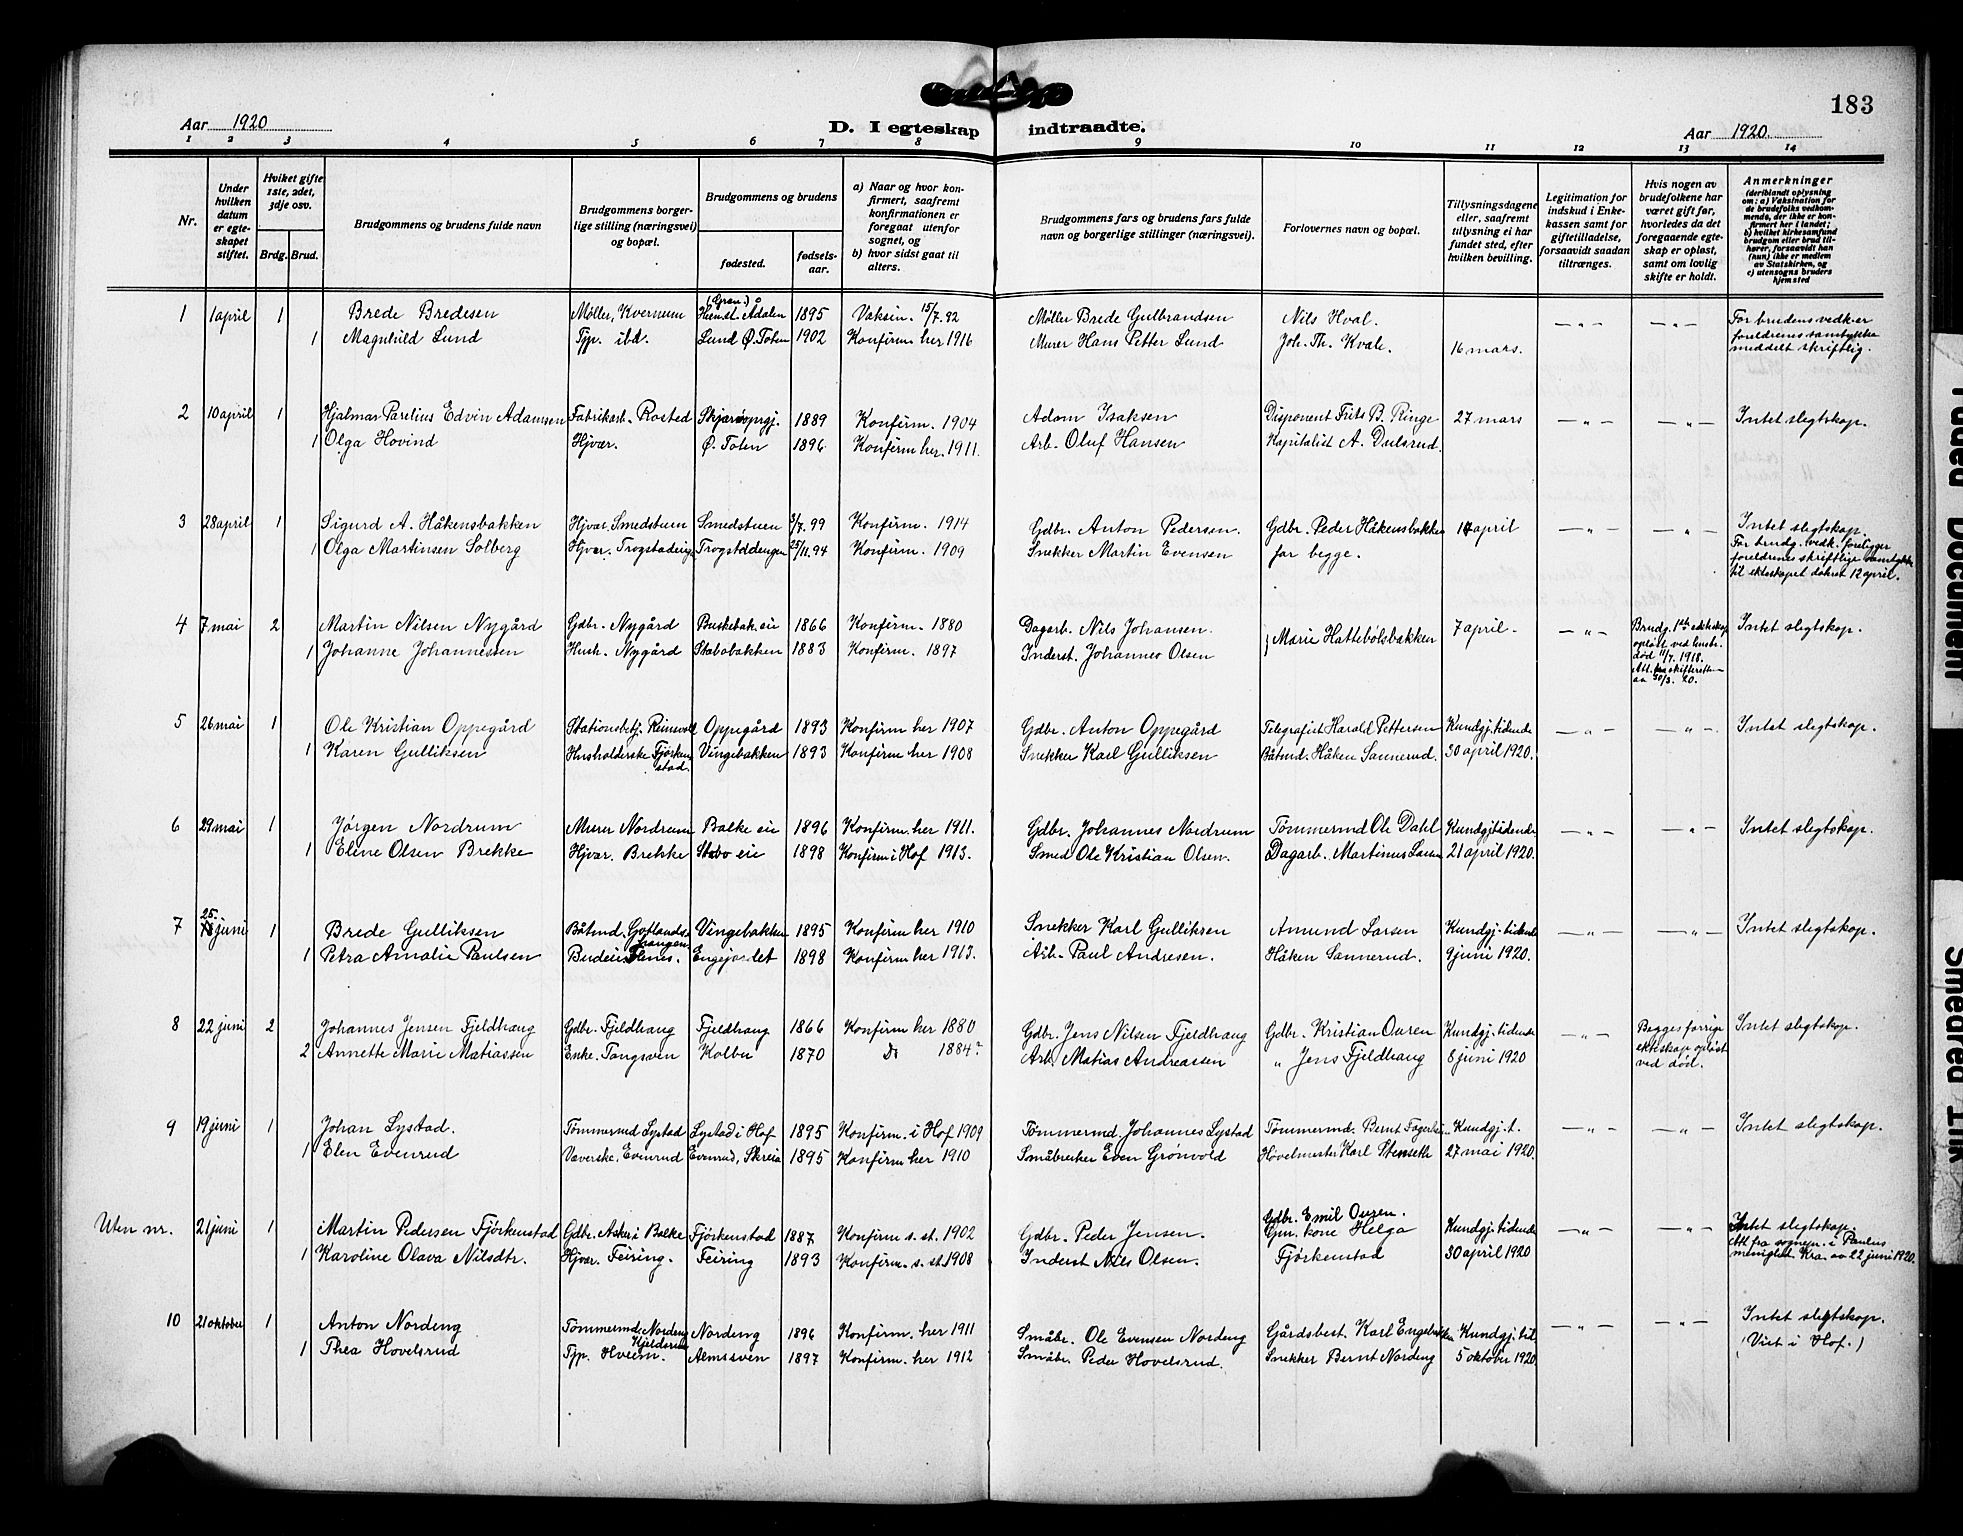 183
Aar 1920
D. I egteskap indtraadte.
Aar 1920.
1 2 3 4 5 6 7 8 9 10 11 12 13 14
Nr.
Under hvilken datum er egteskapet stiftet.
Hviket gifte 1ste, 2det, 3dje osv.
Brdg. Brud.
Brudgommens og brudens fulde navn
Brudgommens borgerlige stilling (næringsvei) og bopæl.
Brudgommens og brudens
fødested.
fødselsaar.
a) Naar og hvor konfirmert, saafremt konfirmationen er foregaat utenfor sognet, og
b) hvor sidst gaat til alters.
Brudgommens fars og brudens fars fulde navn og borgerlige stillinger (næringsvei).
Forlovernes navn og bopæl.
Tillysningsdagene eller, saafremt tillysning ei har fundet sted, efter hvilken bevilling.
Legitimation for indskud i Enkekassen samt for giftetilladelse, forsaavidt saadan tiltrænges.
Hvis nogen av brudefolkene har været gift før, hvorledes da det foregaaende egteskap er opløst, samt om lovlig skifte er holdt.
Anmerkninger (deriblandt oplysning om: a) Vaksination for de brudefolks vedkommende, der ikke er konfirmert her i landet; b) hvilket kirkesamfund brudgom eller brud tilhører, forsaavidt han (hun) ikke er medlem av Statskirken, og c) utensogns bruders hjemsted
1 1 april 1 Brede Bredesen Møller, Kvernum (Gran.) Hemst. Ådalen 1895 Vaksin. 15/7.92 Møller Brede Gulbrandsen Nils Hval. —"— —"— For brudens vedk. er
1 Magnhild Lund Tjp. ibd. Lund Ø. Toten 1902 Konfirm her 1916 Murer Hans Petter Lund Joh. Th. Kvale. 16 mars. foreldrenes samtykke
meddelt skriftlig.
2 10 april 1 Hjalmar Parelius Edvin Adamsen Fabrikarb. Rosted Skjærvøyngj. 1889 Konfirm. 1904 Adam Isaksen Disponent Frits B. Ringe 27 mars —"— —"— Intet slegtskap.
1 Olga Hovind Hjvær. Ø. Toten 1896 Konfirm her. 1911. Arb. Oluf Hansen Kapitalist A. Dulsrud.
3 28 april 1 Sigurd A. Håkensbakken Hjvær. Smedstuen Smedstuen 3/7.99 Konfirm. 1914 Gdbr. Anton Pedersen. Gdbr. Peder Håkensbakken april —"— —"— Intet slegtskap.
1 Olga Martinsen Solberg Hjvær. Trogstadeng Trogstadengen 25/11.94 Konfirm. 1909 Snekker Martin Evensen for begge. For brudg. vedk. foreligger
foreldrenes skriftlige samtykke
til ekteskapet datert 12 april.
4 7 mai 2 Martin Nilsen Nygård Gdbr. Nygård Buskebak. eie 1866 Konfirm. 1880 Dagarb. Nils Johansen. } Marie Hattebølsbakken 7 april. —"— Brudg. 1ste ekteskap Intet slegtskap.
1 Johanne Johannessen Hush. Nygård Stabobakken 1883 Konfirm. 1897 Inderst. Johannes Olsen opløst ved hustr.
død 11/7. 1918.
Att. fra skifteretten
av 30/3. 20.
5 26 mai 1 Ole Kristian Oppegård Stationsbetj. Reinsvoll Oppegård 1893 Konfirm her 1907 Gdbr. Anton Oppegård Telegrafist Harald Pettersen Kundgj. tidende —"— —"— Intet slegtskap.
1 Karen Gulliksen Husholderske Fjørkenstad. Vingebakken 1893 Konfirm her 1908 Snekker Karl Gulliksen Båtmd. Håken Sannerud. 30 april 1920.
6 29 mai 1 Jørgen Nordrum Murer Nordrum Balke eie 1896 Konfirm. her 1911. Gdbr. Johannes Nordrum Tømmermd Ole Dahl Kundgj. tidende —"— —"— Intet slegtskap.
1 Eline Olsen Brekke Hjvær. Brekke Stabo eie 1898 Konfirm i Hof 1913. Smed Ole Kristian Olsen. Dagarb. Martinus Larsen 21 april 1920.
7 25. juni 1 Brede Gulliksen Båtmd. Vingebakken 1895 Konfirm her 1910 Snekker Karl Gulliksen Amund Larsen Kundgj. tidende —"— —"— Intet slegtskap.
1 Petra Amalie Paulsen Budeie Engejordet 1898 Konfirm her 1913. Arb. Paul Andresen. Håken Sannerud. 9 juni 1920.
8 22 juni 2 Johannes Jensen Fjeldhaug Gdbr. Fjeldhaug Fjeldhaug 1866 Konfirm her 1880 Gdbr. Jens Nilsen Fjeldhaug Gdbr. Kristian Ouren Kundgj. tidende —"— Begges forrige Intet slegtskap.
2 Annette Marie Matiassen Enke. Tangsven Kolbu 1870 Do 1884? Arb. Matias Andreassen " Jens Fjeldhaug 8 juni 1920 ekteskap opløst
ved død.
9 19 juni 1 Johan Lystad. Tømmermd Lystad Lystad i Hof 1895 Konfirm. i Hof 1909 Tømmermd. Johannes Lystad Tømmermd. Bernt Kundgj. t. —"— —"— Intet slegtskap.
1 Elen Evenrud Væverske, Evenrud Evenrud, Skreia 1895 Konfirm her 1910 Småbruker Even Grønvold Høvelmester Karl Stenseth 27 mai 1920.
Uten nr. 21 juni 1 Martin Pedersen Fjørkenstad Gdbr. Asker i Balke Fjørkenstad 1887 Konfirm s. st. 1902 Gdbr. Peder Jensen. Gdbr. Emil Ouren. Gm. kone Helga Kundgj. tidende —"— —"— Intet slegtskap.
1 Karoline Olava Nilsdtr. Hjvær. Feiring. Feiring 1893 Konfirm. s. st. 1908 Inderst Nils Olsen. Fjørkenstad 30 april 1920 Att. fra sognepr. i Paulus
menighet Kra. av 22 juni 1920.
10 21 oktober 1 Anton Nordeng Tømmermd. Nordeng Nordeng 1896 Konfirm. her 1911 Småbr. Ole Evensen Nordeng Gårdsbest. Karl Kundgj. tid. —"— —"— Intet slegtskap.
1 Thea Hovelsrud Tjp. Hveem. Almssven 1897 Konfirm. her 1912 Småbr. Peder Hovelsrud. Snekker Bernt Nordeng 5 oktober 1920 (Viet i Hof.)
Faded Document
Smeared Ink